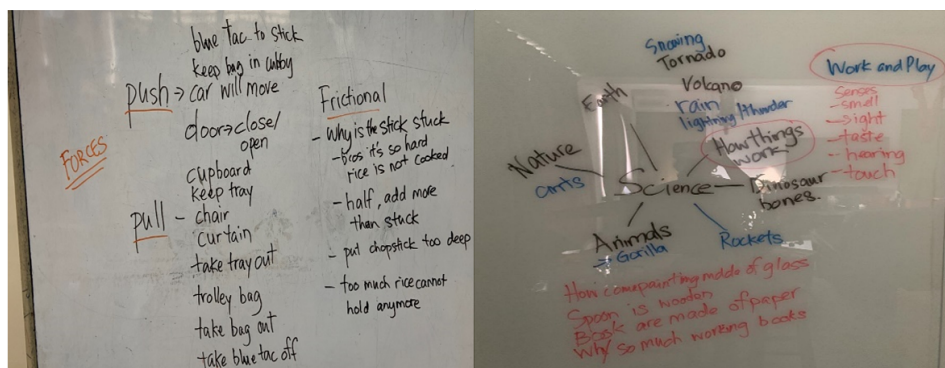 FORCES
blue tac to stick
keep bag in cubby
push → car will move
door → close/
open
cupboard
keep tray
pull - chair
curtain
take tray out
trolley bag
take bag out
take blue tac off
Frictional
- Why is the stick stuck
- bcos it's so hard
rice is not cooked
- half, add more
than stuck
- put chopstick too deep
- too much rice cannot
hold anymore
Snowing
Tornado
Volcano
rain
lightning/thunder
Earth
Nature
ants
Science
How things
work
Dinosaur
bones.
Rockets
Animals
→ Gorilla
Work and Play
Senses
- smell
- sight
- taste
- hearing
- touch
How come made of glass
Spoon is wooden
Book are made of paper
Why so much working books